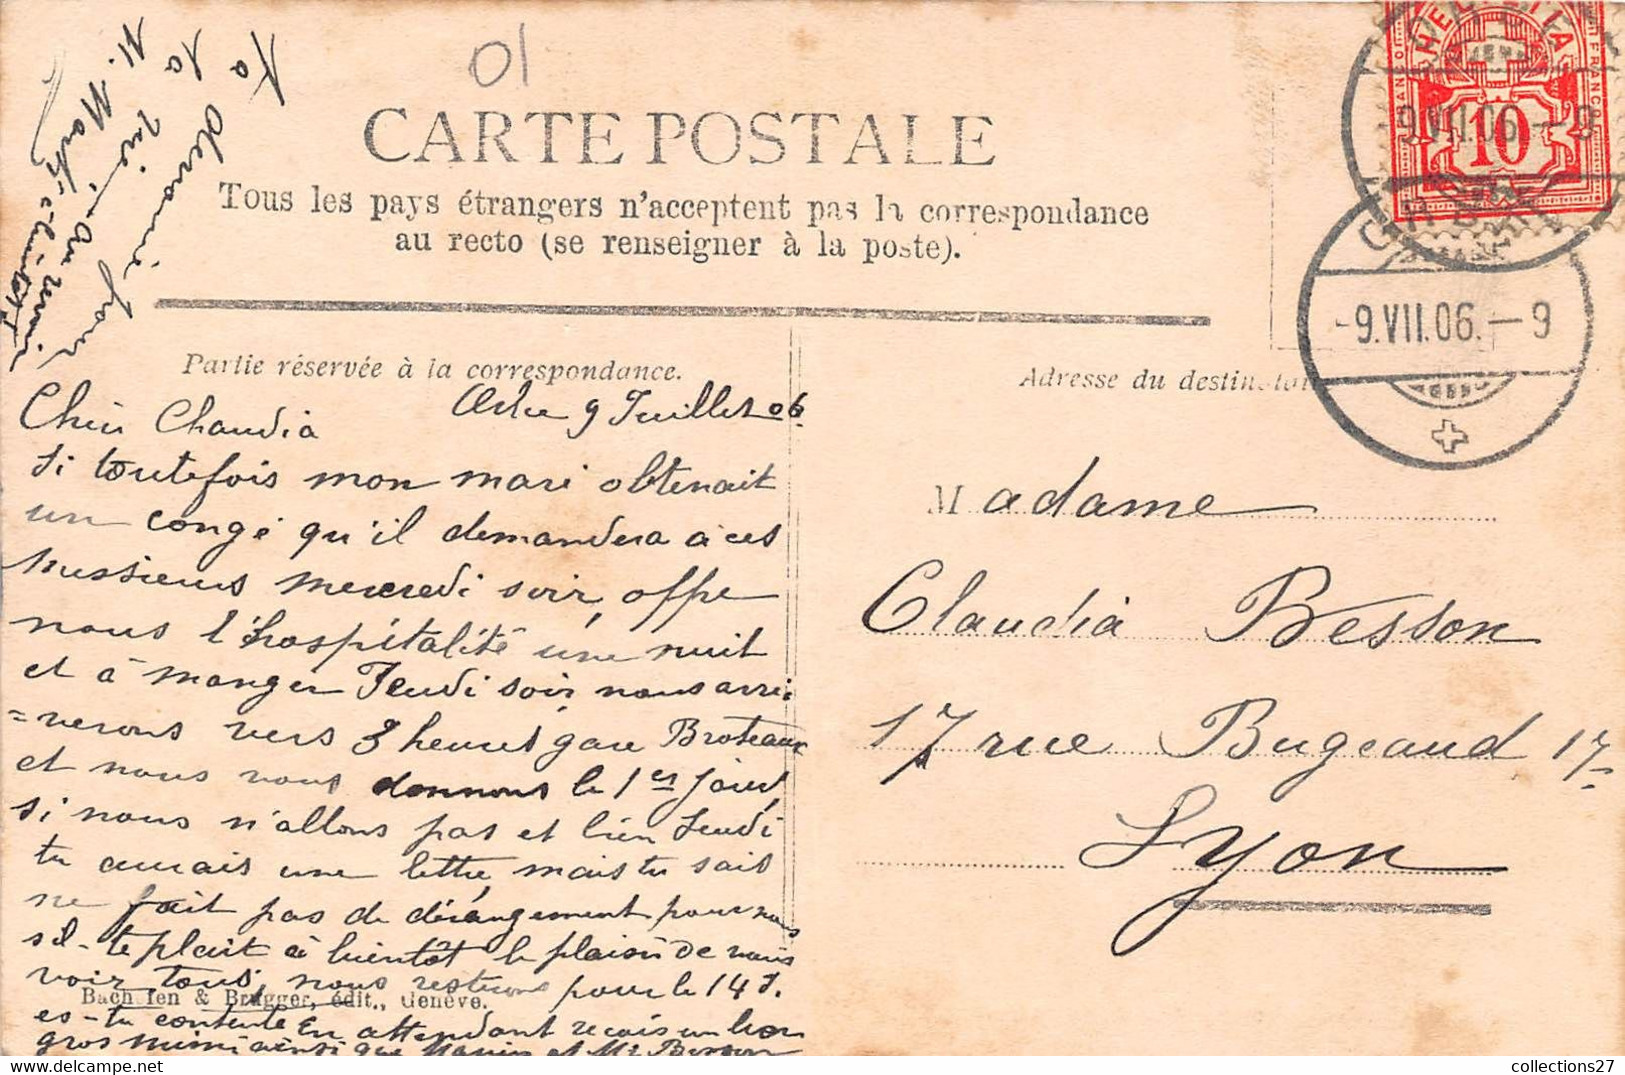 01
CARTE POSTALE
Tous les pays étrangers n'acceptent pas la correspondance
au recto (se renseigner à la poste).
HELVETIA
FRANCO
10
9.VII.06.-9
-9.VII.06.-9
Partie réservée à la correspondance.
Adresse du destinatai
9 Juillet 06
Chèr Chaudia
Si toutefois mon mari obtenait
un congé qu'il demandera à ces
messieurs mercredi soir, offre
nous l'hospitalité une nuit
et à manger Jeudi soir nous arri-
=verons vers 8 heures gare Broteaux
et nous nous donnons le 1er
si nous n'allons pas et bien Jeudi
tu aurais une lettre mais tu sais
ne fait pas de dérangement pour nous
s'il-te plait à bientôt le plaisir de vous
voir tous, nous resterons pour le 14 J.
es-tu contente En attendant reçois un bon
gros mimi ainsi que et Mr Besson
Bachofen & Brugger, édit., Genève.
Madame
Claudia Besson
17 rue Bugeaud 17
Lyon
collections27